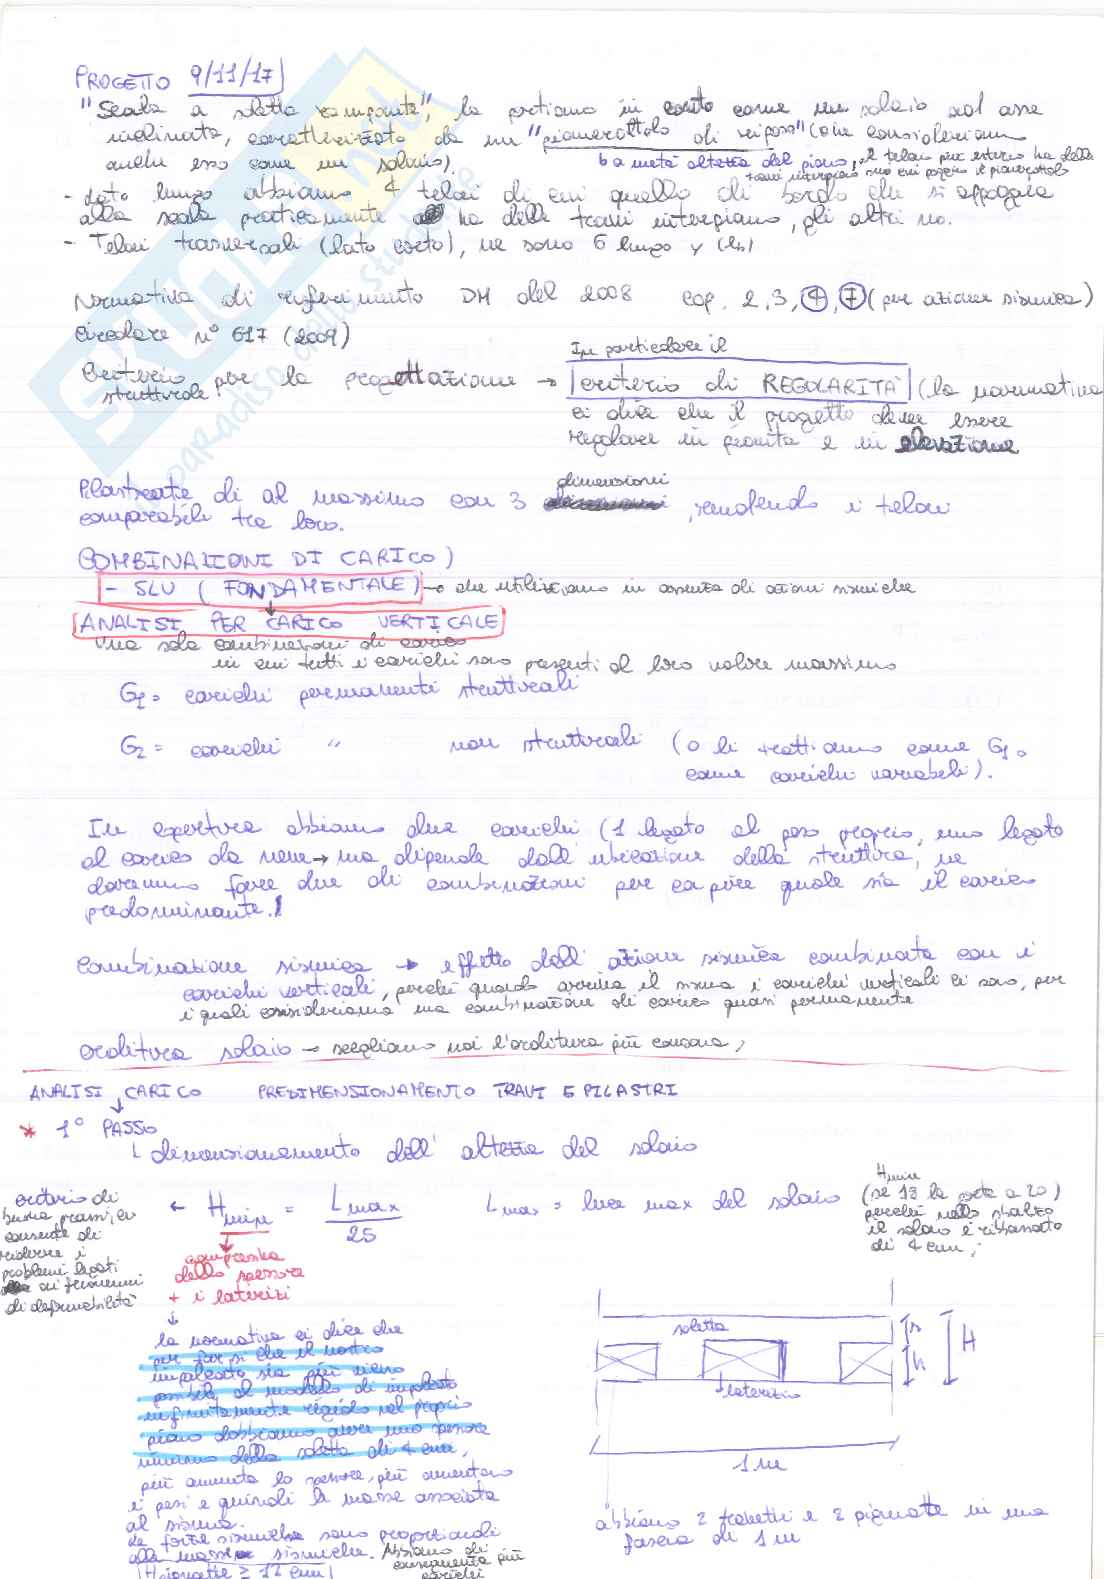 PROGETTO 9/11/17
"Scala a soletta rampante", la portiamo in conto come un solaio ad asse
inclinata, caratterizzato da un "pianerottolo di riposo" (che consideriamo
anche esso come un solaio).
↳ a metà altezza del piano, il telaio più esterno ha delle
travi interpiano su cui poggia il pianerottolo
- Lato lungo abbiamo 4 telai di cui quello di bordo che si appoggia
alla scala praticamente ha delle travi interpiano, gli altri no.
- Telai trasversali (lato corto), ne sono 6 lungo y
Normativa di riferimento DM del 2008 cap. 2, 3, 4, 7 (per azione sismica)
Circolare n° 617 (2009)
In particolare il
Criterio per la progettazione → criterio di REGOLARITÀ (la normativa
strutturale
ci dice che il progetto deve essere
regolare in pianta e in elevazione
Pilastrate di al massimo con 3 dimensioni, rendendo i telai
comparabili tra loro.
COMBINAZIONI DI CARICO)
- SLU (FONDAMENTALE) → che utilizziamo in assenza di azioni sismiche
ANALISI PER CARICO VERTICALE
Una sola combinazioni di carico
in cui tutti i carichi sono presenti al loro valore massimo
G1= carichi permanenti strutturali
G2= carichi " non strutturali (o li trattiamo come G1 o
come carichi variabili).
In copertura abbiamo due carichi (1 legato al peso proprio, uno legato
al carico da neve → ma dipende dall'ubicazione della struttura, ne
dovremmo fare due di combinazioni per capire quale sia il carico
predominante.
Combinazione sismica → effetto dell'azione sismica combinata con i
carichi verticali, perché quando arriva il sisma i carichi verticali ci sono, per
i quali consideriamo una combinazione di carico quasi permanente
Orditura solaio → scegliamo noi l'orditura più consona,
ANALISI CARICO PREDIMENSIONAMENTO TRAVI E PILASTRI
* 1° PASSO
↳ dimensionamento dell'altezza del solaio
criterio di
buona prassi, ci
consente di
ridurre i
problemi legati
ai fenomeni
di deformabilità
← Hmin = Lmax / 25
Lmax = luce max del solaio
Hmin
(se 18 la porta a 20)
perché nello sbalzo
il solaio è ribassato
di 4 cm;
comprensiva
dello spessore
+ i laterizi
la normativa ci dice che
per far sì che il nostro
impalcato sia più vicino
possibile al modello di impalcato
infinitamente rigido nel proprio
piano dobbiamo avere uno spessore
minimo della soletta di 4 cm,
più aumenta lo spessore, più aumentano
i pesi e quindi la massa associata
al sisma.
Le forze sismiche sono proporzionali
alle masse sismiche. Abbiamo di
conseguenza più
carichi
Hpignatte ≥ 12 cm
soletta
laterizio
s
h
H
1 m
abbiamo 2 travetti e 2 pignatte in una
fascia di 1 m